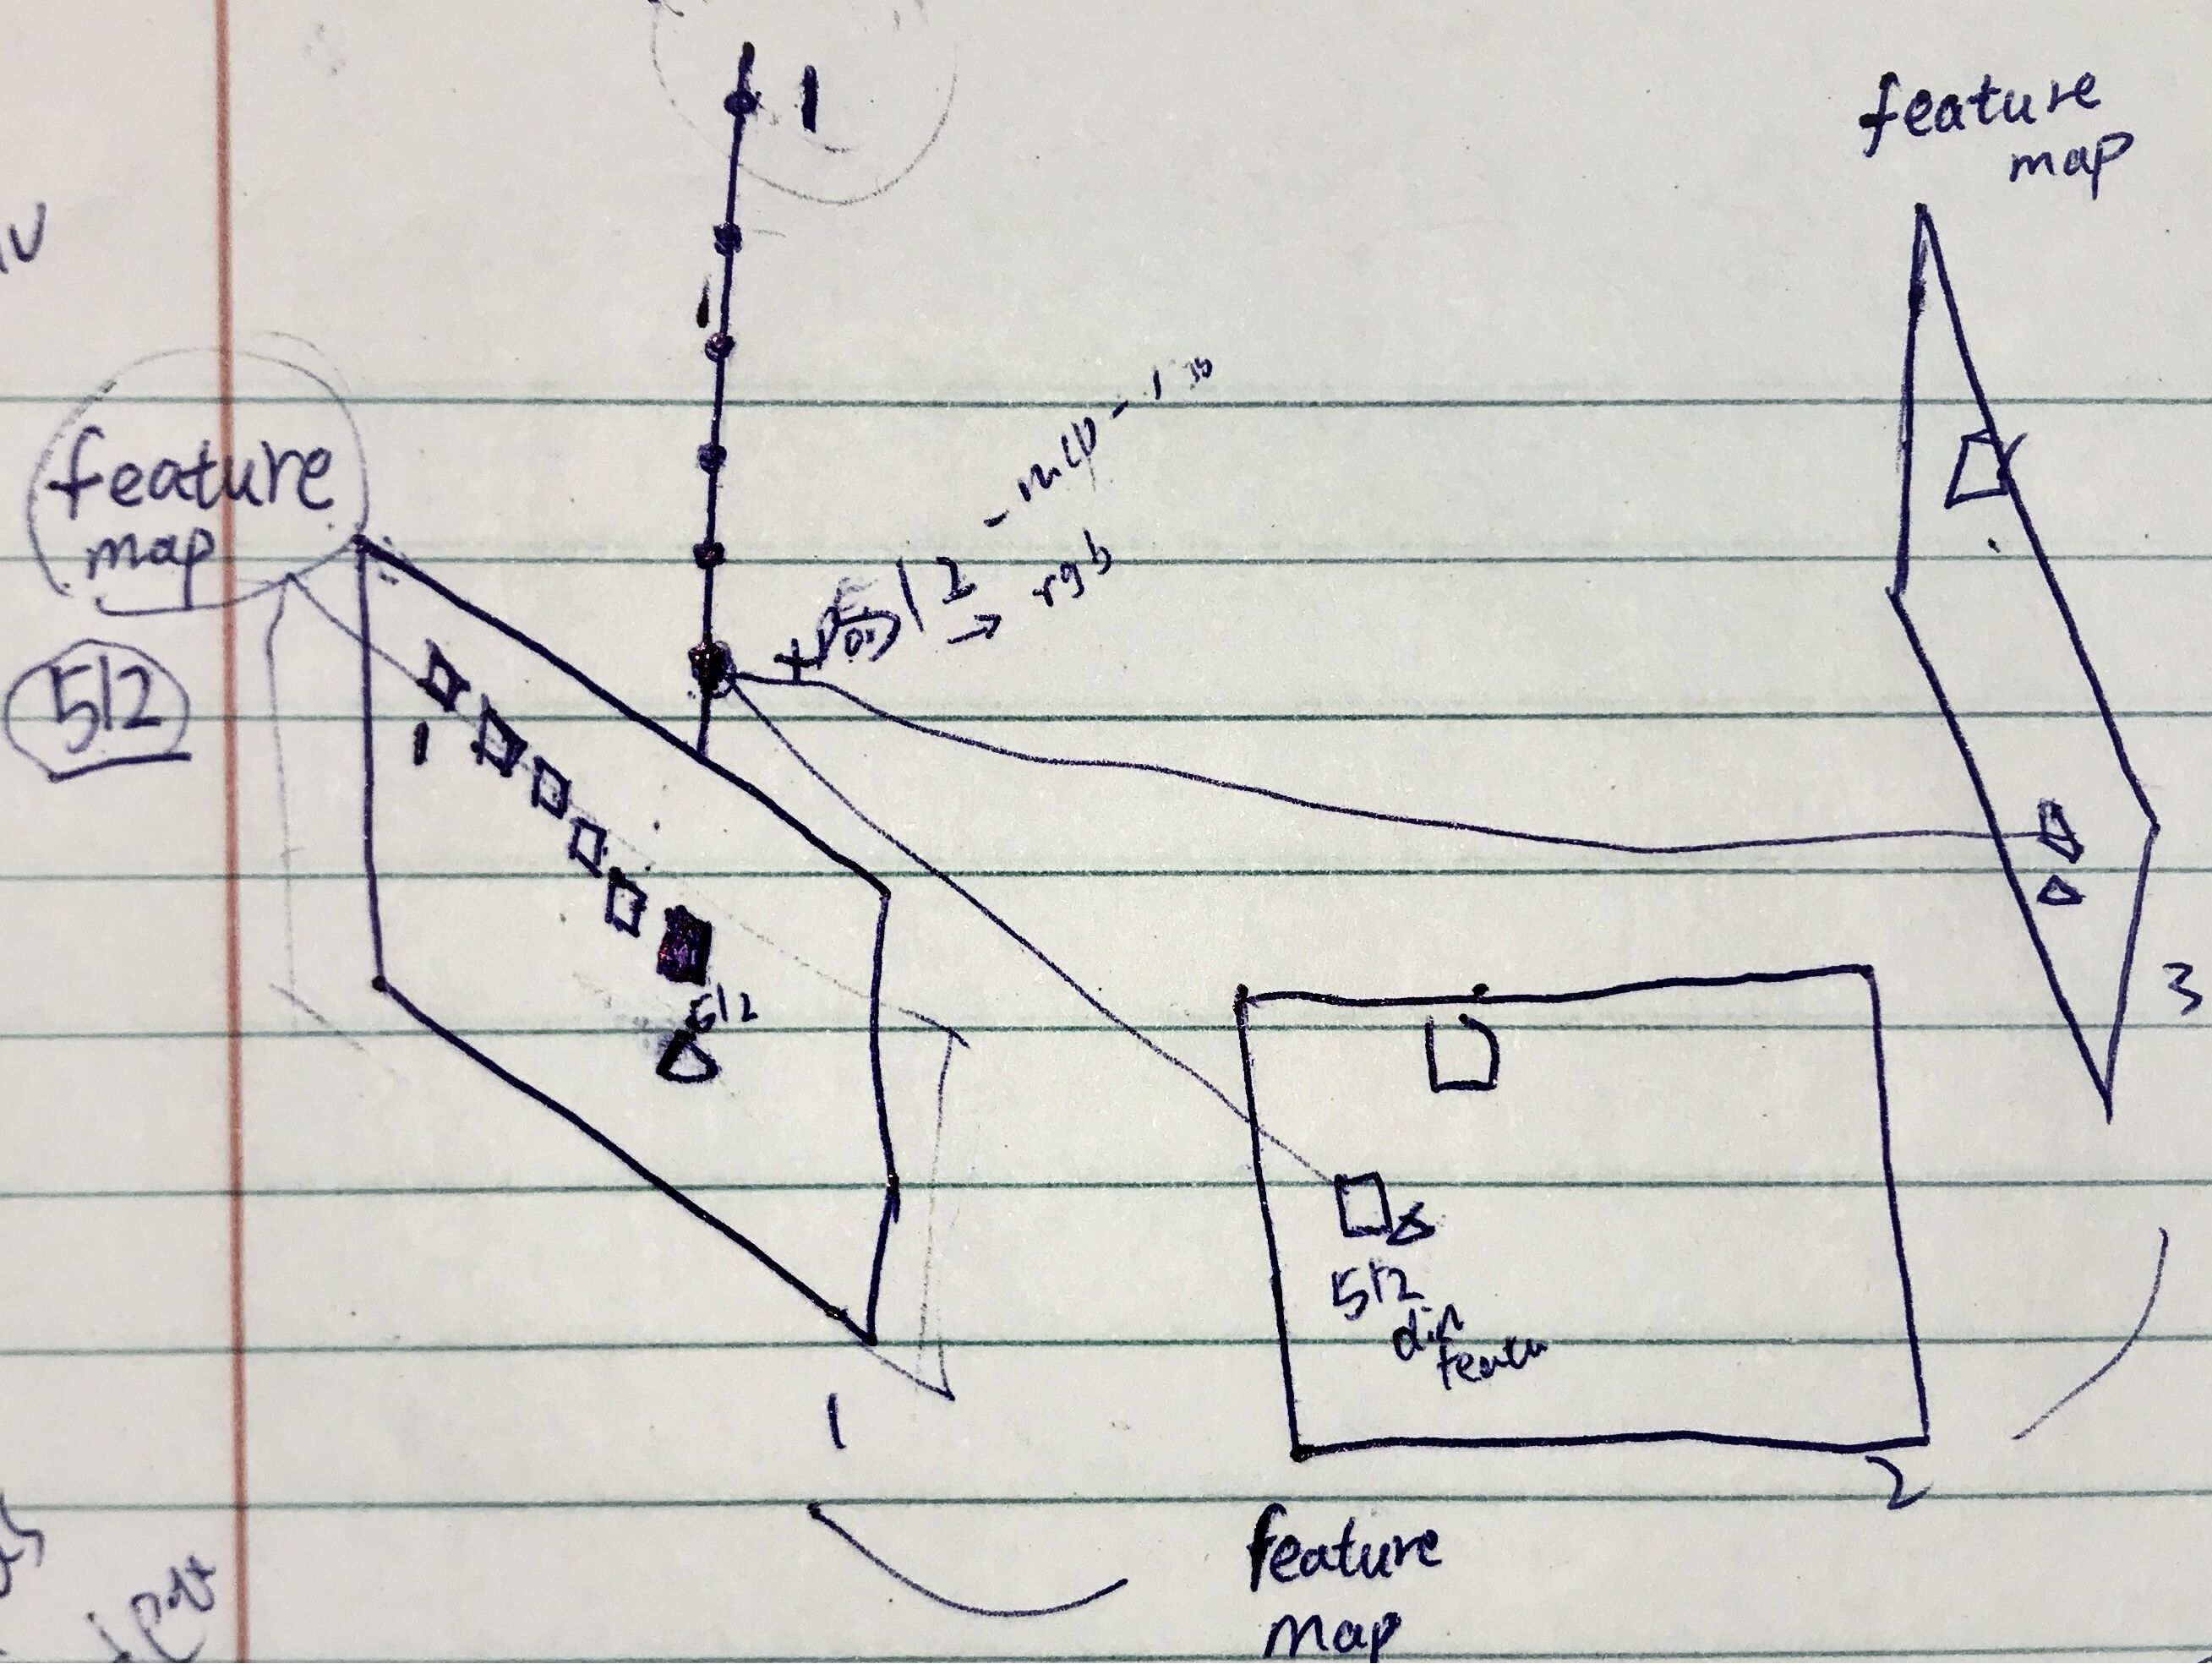 1
feature
map
feature
map
512
1
512
→ rgb
- mlp -
512
3
512
1
2
feature
map